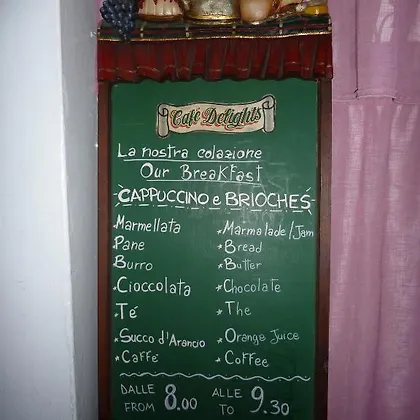 Café Delights
La nostra colazione
Our Breakfast
CAPPUCCINO e BRIOCHES
Marmellata * Marmalade/Jam
Pane * Bread
Burro * Butter
Cioccolata * Chocolate
Té * The
* Succo d'Arancio * Orange Juice
* Caffé * Coffee
DALLE 8.00 ALLE 9.30
FROM TO